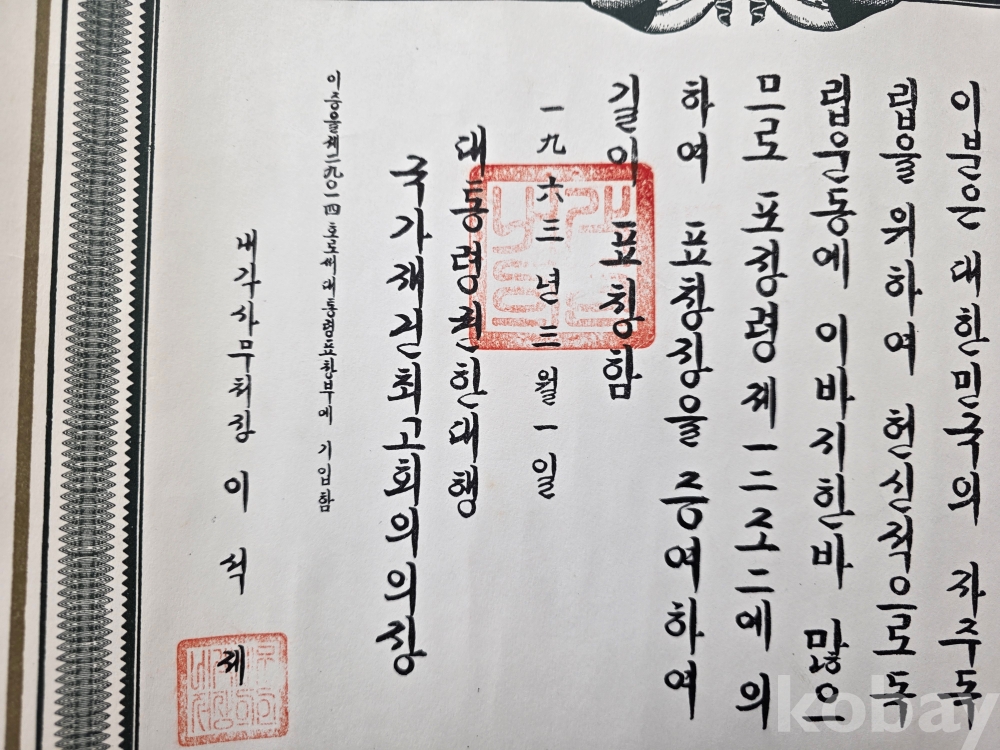 이분은 대한민국의 자주독
립을 위하여 헌신적으로 독
립운동에 이바지한바 많으
므로 포상령제一二조二에의
하여 표창장을 증여하여
길이 표창함
一九六三년三월一일
대통령권한대행
국가재건최고회의의장
이증을제二九〇一四호로써대통령표창부에 기입함
내각사무처장 이 석 제
kobay